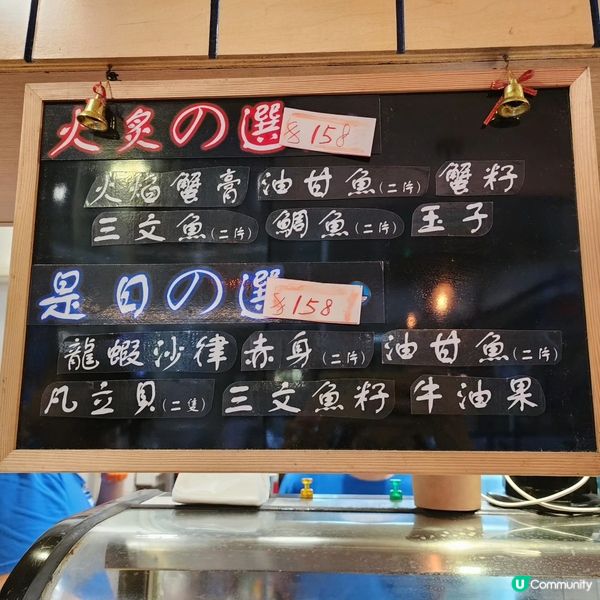 火炙の選 $158
火焰蟹膏 油甘魚(二片) 蟹籽
三文魚(二片) 鯛魚(二片) 玉子
是日の選 $158
龍蝦沙律 赤身(二片) 油甘魚(二片)
凡立貝(二隻) 三文魚籽 牛油果
U Community